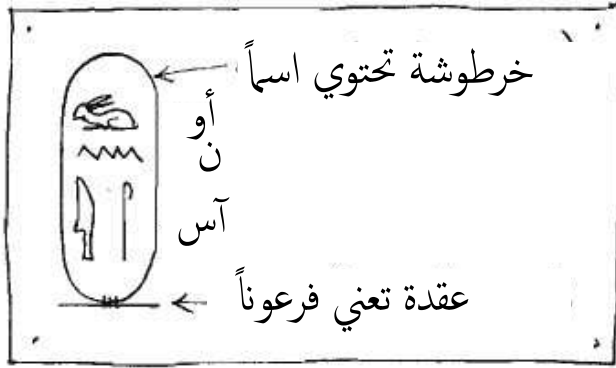 خرطوشة تحتوي اسماً
أو
ن
آس
عقدة تعني فرعوناً